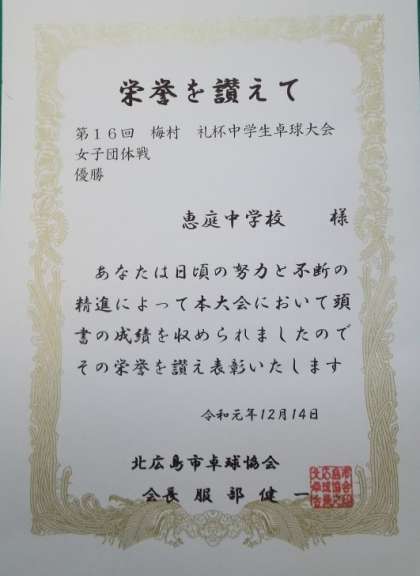 栄誉を讃えて
第１６回　梅村　礼杯中学生卓球大会
女子団体戦
優勝
恵庭中学校　様
あなたは日頃の努力と不断の
精進によって本大会において頭
書の成績を収められましたので
その栄誉を讃え表彰いたします
令和元年12月14日
北広島市卓球協会
会長 服部健一